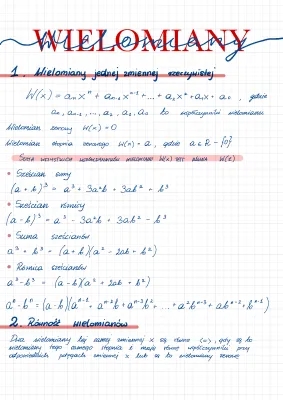 WIELOMIANY
1. Wielomiany jednej zmiennej rzeczywistej
W(x) = aₙxⁿ + aₙ₋₁xⁿ⁻¹ + ... + a₂x² + a₁x + a₀, gdzie
aₙ, aₙ₋₁, ..., a₂, a₁, a₀ to współczynniki wielomianu
Wielomian zerowy W(x) = 0
Wielomian stopnia zerowego W(x) = a, gdzie a ∈ R - {0}
Suma wszystkich współczynników wielomianu W(x) jest równa W(1)
• Sześcian sumy
(a + b)³ = a³ + 3a²b + 3ab² + b³
• Sześcian różnicy
(a - b)³ = a³ - 3a²b + 3ab² - b³
• Suma sześcianów
a³ + b³ = (a + b)(a² - ab + b²)
• Różnica sześcianów
a³ - b³ = (a - b)(a² + ab + b²)
aⁿ - bⁿ = (a - b)(aⁿ⁻¹ + aⁿ⁻²b + aⁿ⁻³b² + ... + a²bⁿ⁻³ + abⁿ⁻² + bⁿ⁻¹)
2. Równość wielomianów
Dwa wielomiany tej samej zmiennej x są równe gdy są to
wielomiany tego samego stopnia i mają równe współczynniki przy
odpowiednich potęgach zmiennej x lub są to wielomiany zerowe